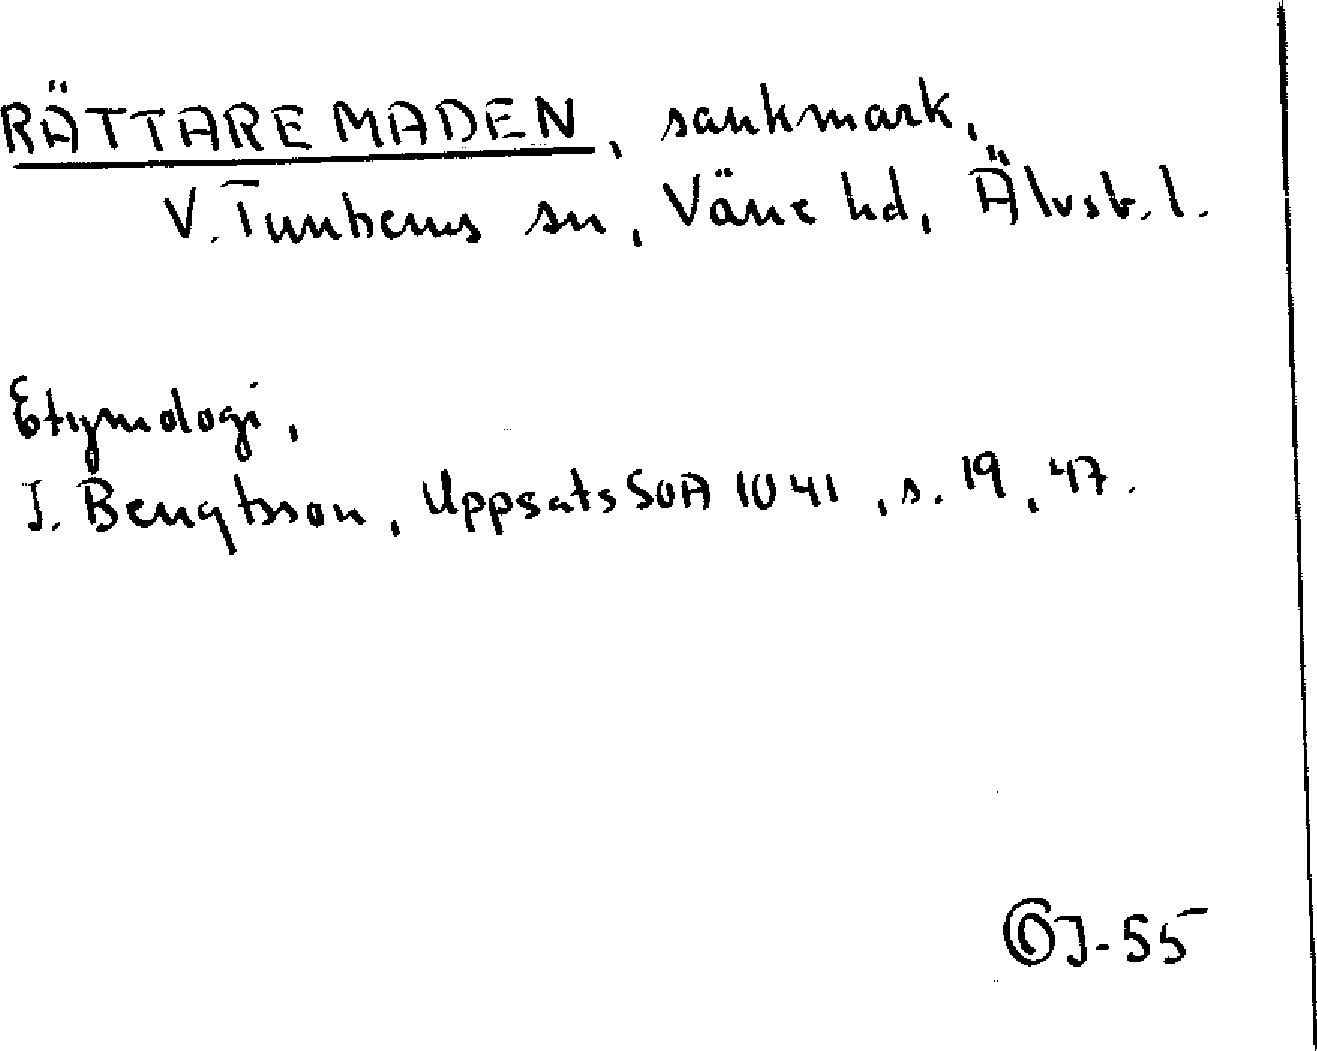 RÄTTAREMADEN, sankmark,
V. Tunhems sn, Väne hd, Älvsb. l.
Etymologi,
J. Bengtsson, Uppsats SOA 1041, s. 19, 47.
J-55